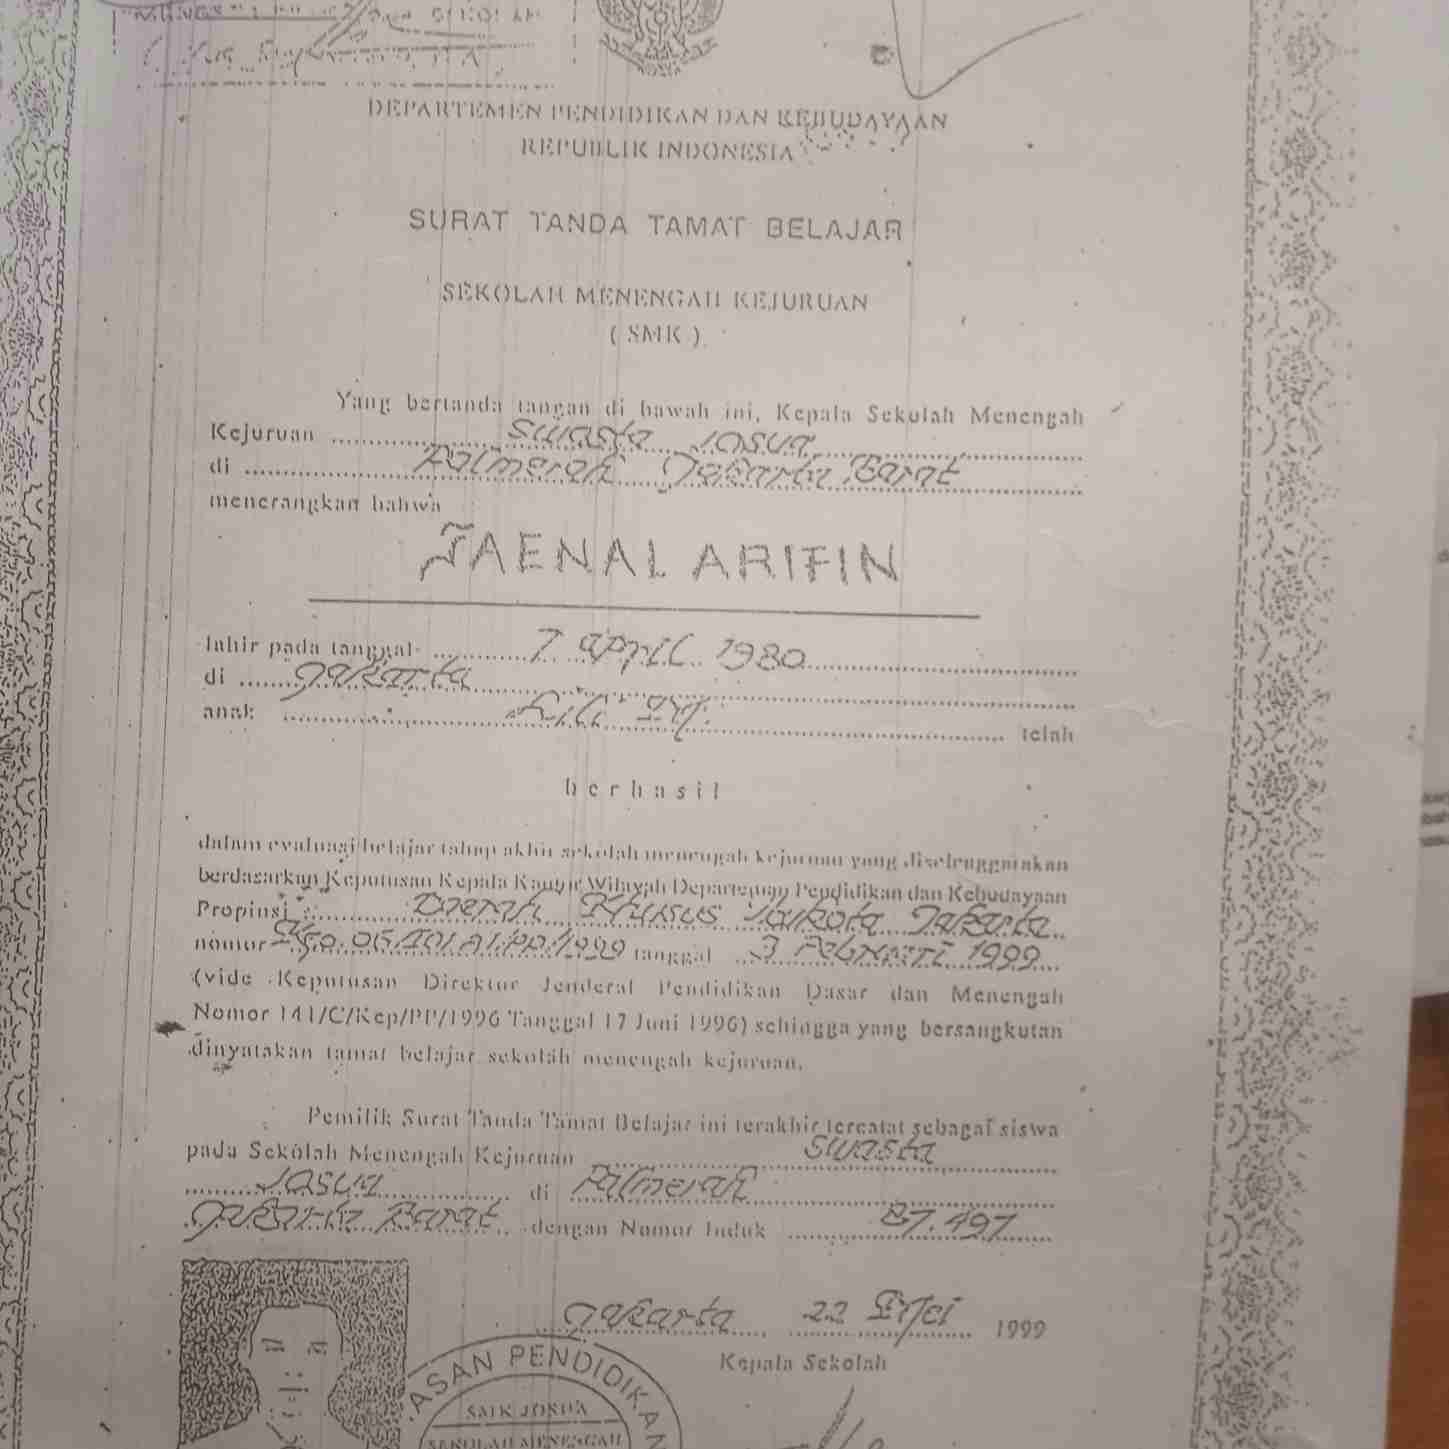 DEPARTEMEN PENDIDIKAN DAN KEBUDAYAAN
REPUBLIK INDONESIA
SURAT TANDA TAMAT BELAJAR
SEKOLAH MENENGAH KEJURUAN
( SMK )
Yang bertanda tangan di bawah ini, Kepala Sekolah Menengah
Kejuruan Swasta Josua
di Palmerah Jakarta Barat
menerangkan bahwa
JAENAL ARIFIN
lahir pada tanggal 7 April 1980
di Jakarta
anak telah
berhasil
dalam evaluasi belajar tahap akhir sekolah menengah kejuruan yang diselenggarakan
berdasarkan Keputusan Kepala Kantor Wilayah Departemen Pendidikan dan Kebudayaan
Propinsi Daerah Khusus Ibukota Jakarta
nomor tanggal 3 Pebruari 1999
(vide Keputusan Direktur Jenderal Pendidikan Dasar dan Menengah
Nomor 141/C/Kep/PP/1996 Tanggal 17 Juni 1996) sehingga yang bersangkutan
dinyatakan tamat belajar sekolah menengah kejuruan.
Pemilik Surat Tanda Tamat Belajar ini terakhir tercatat sebagai siswa
pada Sekolah Menengah Kejuruan Swasta
Josua di Palmerah
Jakarta Barat dengan Nomor Induk 87.497
Jakarta 22 Mei 1999
Kepala Sekolah
YASAN PENDIDIKAN
SMK JOSUA
SEKOLAH MENENGAH